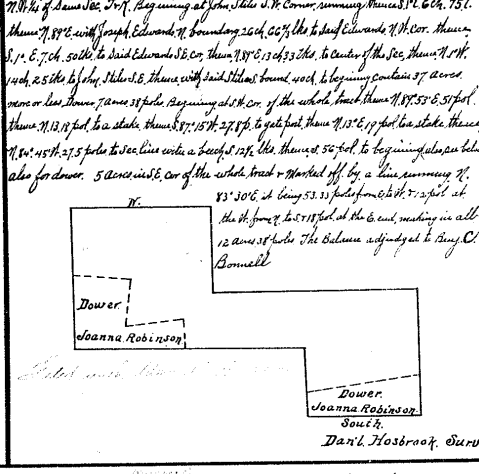 N.W.¼ of Same Sec. Tr. R. Beginning at John Stiles S.W. Corner, running thence S.1°E. 6ch. 75 l.
thence N.89°E. with Joseph Edwards N. boundary 26ch. 66⅔ lks to said Edwards N.W. cor. thence
S.1°.E.7.ch. 50 lks. to Said Edwards S.E. cor, thence N.89°E 13ch 33 lks. to center of the Sec. thence N.1°W.
14ch. 25 lks to John Stiles S.E. thence with said Stiles S. bound. 40ch. to beginy contain 37 acres
more or less, Dower, 7 acres 38 poles. Beginning at S.W. cor. of the whole tract, thence N.89°53'E. 51 pol.
thence N.13,18 pol. to a stake, thence S.87°.15'W. 27.8 p. to gate post, thence N.13°E 19 pol. to a stake, thence
N.84°.45'W. 27.5 poles to Sec. line with a beech, S.12½ lks. thence S. 56 pol. to beginning also, see below
also for dower. 5 acres, in S.E. cor of the whole tract & marked off by a line running N.
83°30'E, it being 53.33 poles from E. to W. & 12 pol. at
the W. from N. to S. & 18 pol. at the E. end, making in all
12 acres 38 poles The Balance adjudged to Benj. C.
Bonnell
N.
Dower.
Joanna. Robinson
Dower.
Joanna. Robinson
South.
Dan'l. Hosbrook. Surv